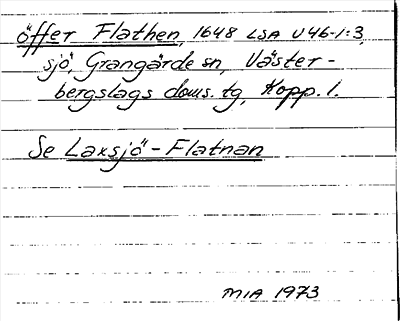 öffer Flathen, 1648 LSA U46-1:3,
sjö, Grangärde sn, Väster-
bergslags doms. tg, Kopp. l.
Se Laxsjö-Flatnan
MIA 1973